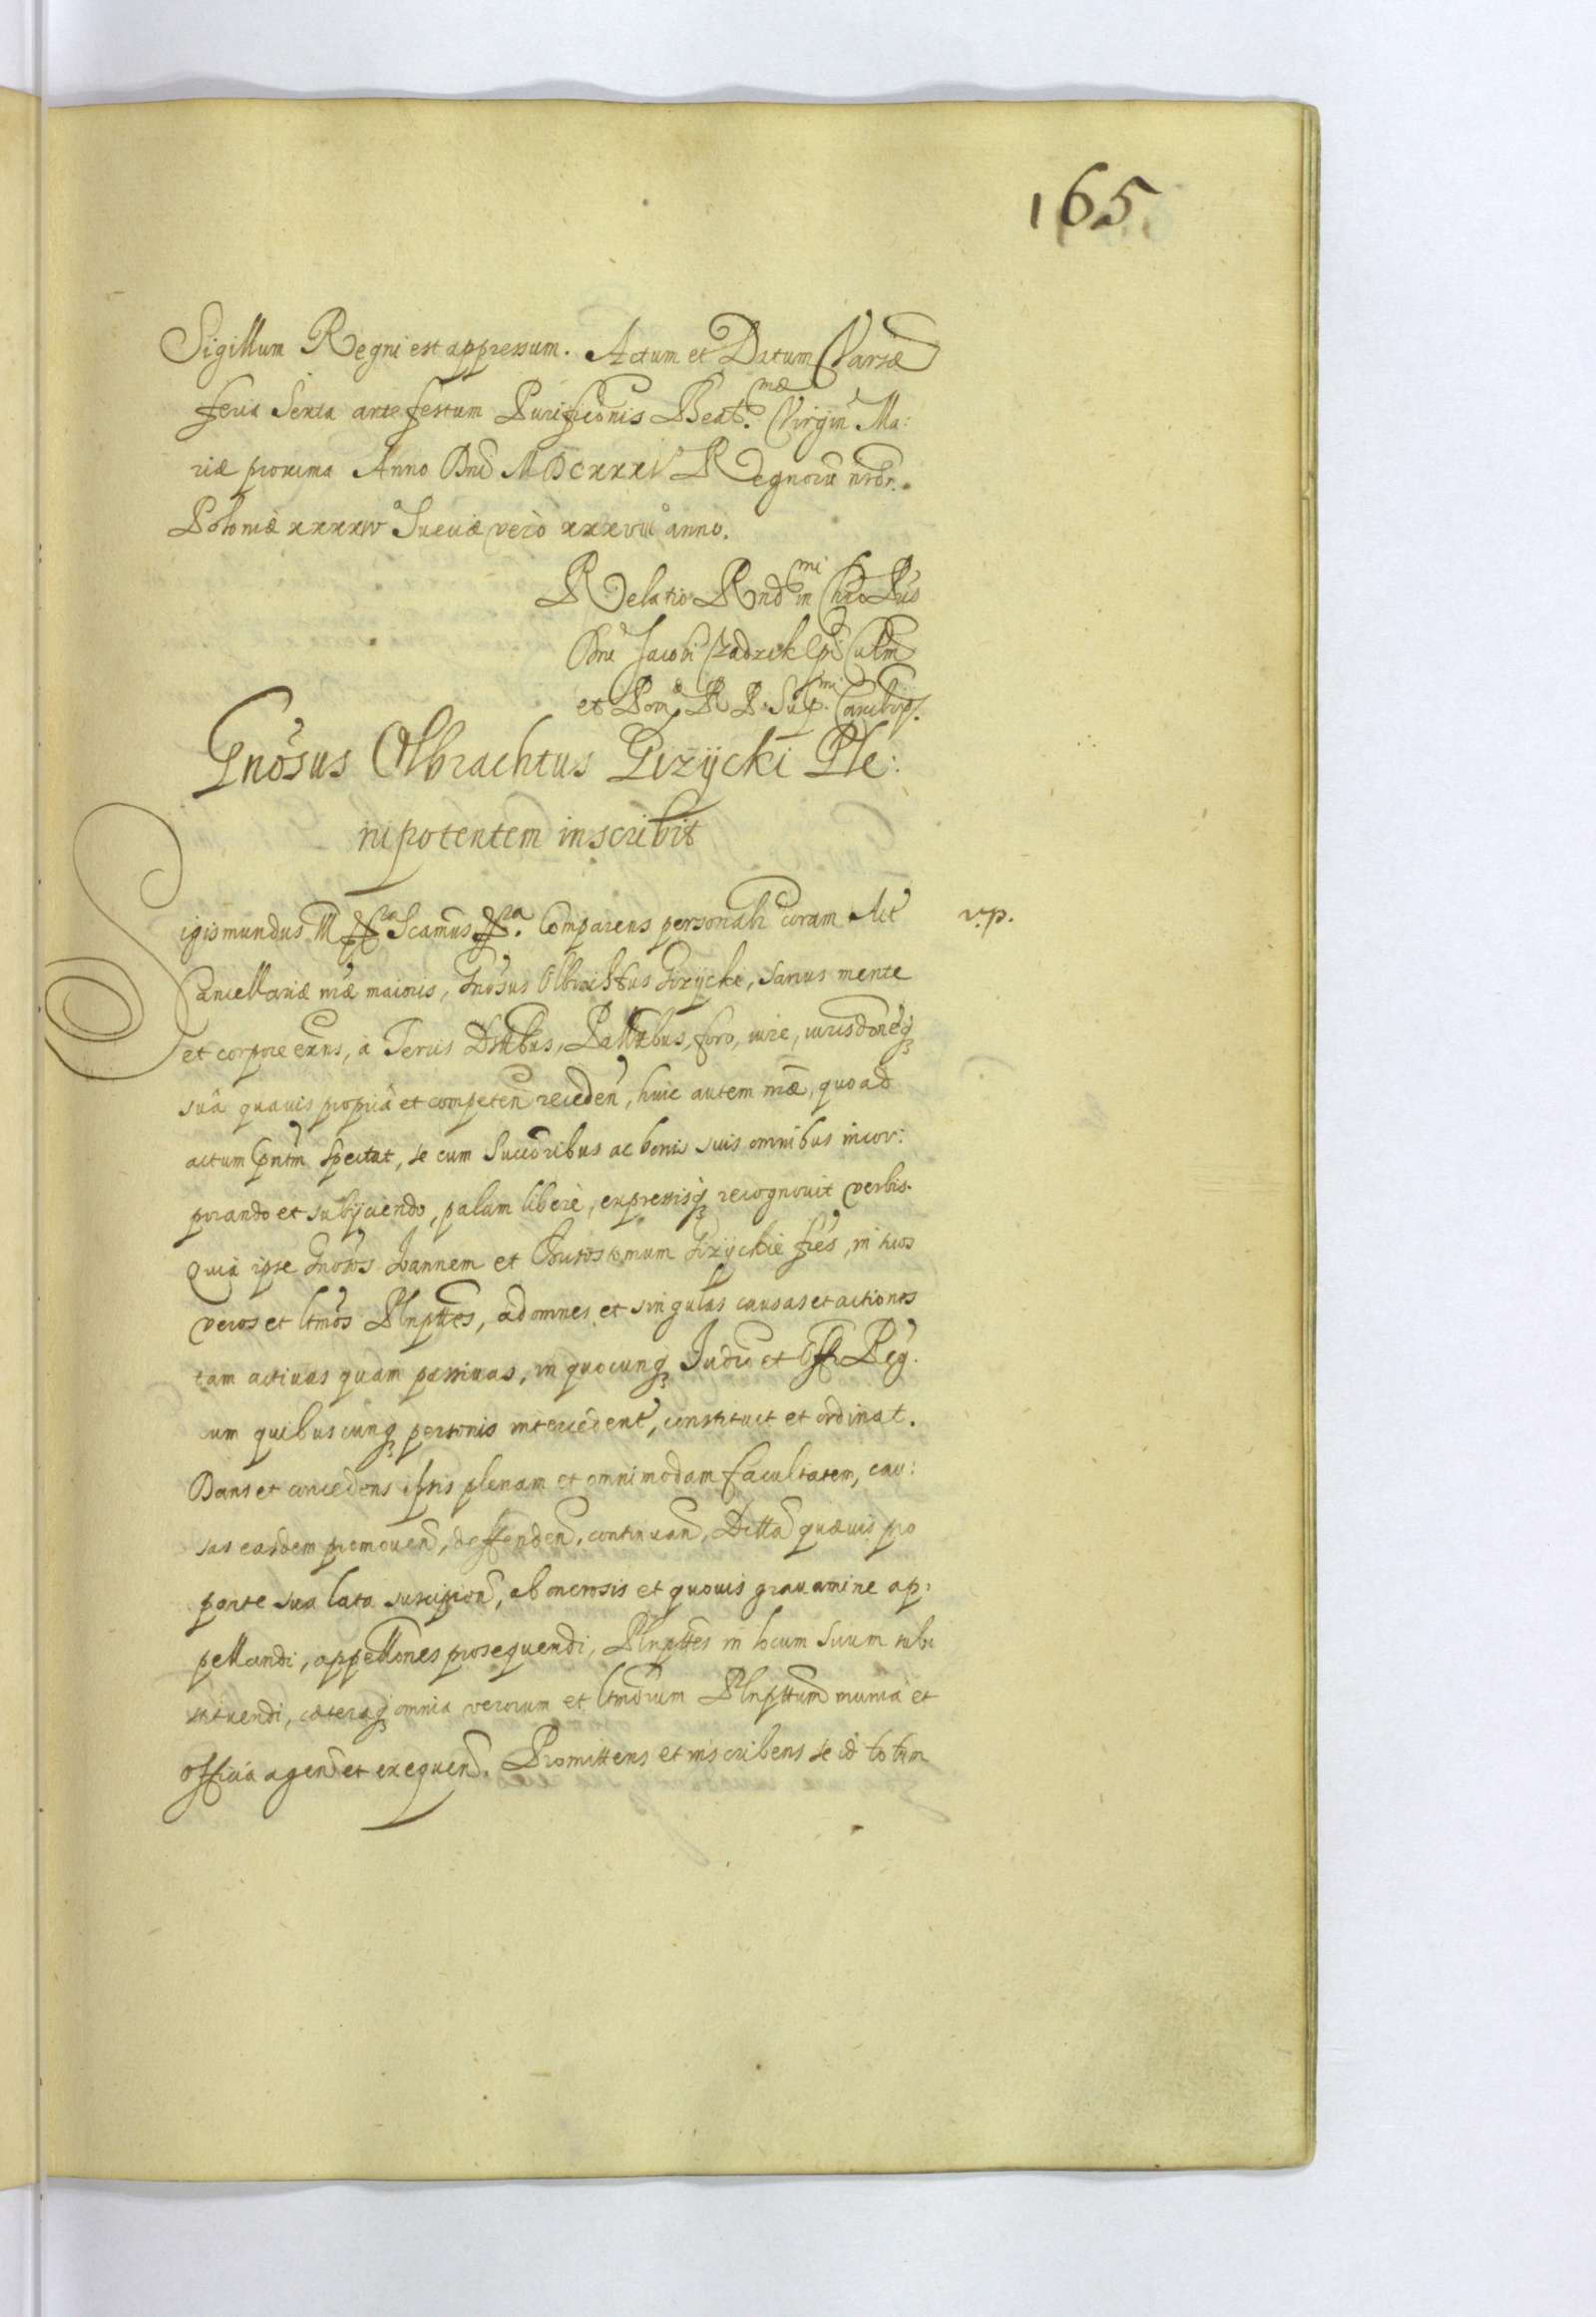 165
Sigillum Regni est appressum. Actum et Datum Varsæ
feria Sexta ante festum Purificõnis Beat.mæ Virgin Ma:
riæ proxima Anno Dni MDCXXXI Regnorũ nrõr.
Poloniæ xxxxiv° Sueciæ vero xxxviii° anno.
Relatio Rndmi in Chro Pris
Dni Jacobi Zadzik Epi Culm
et Pom R P Supmi Cancellrÿ.
Gnõsus Olbrachtus Gizÿcki Ple:
nipotentem inscribit
igismundus III etca Scamus etca. Comparens personalr coram Act v.p.
Cancellariæ nræ maioris, Gnõsus Olbrachtus Gizÿcki, sanus mente
et corpore exns, a Terris Dsttbus, Pallatbus, foro, iure, iurisdonẽq;
suâ quauis propriâ et competen̄ receden̄, huic autem nræ, quoad
actum pntm spectat, se cum Succoribus ac bonis suis omnibus incor:
porando et subijciendo, palam liberè, expressisq; recognouit verbis.
Quia ipse Gnõsos Joannem et Chrisostomum Gizÿckie frẽs, in suos
veros et ltmos Plnpttes, ad omnes et singulas causas et actiones
tam actiuas quam passiuas, in quocunq; Judio et Offo Reg.
cum quibuscunq; personis interceden̄t, constituit et ordinat.
Dans et concedens ipsis plenam et omnimodam facultatem, cau:
sas easdem promouen̄, deffenden̄, continuan̄, Dctta quæuis pro
parte sua lata suscipien̄, ab onerosis et quouis grauamine ap:
pellandi, appellones prosequendi, Plnpttes in locum suum subs
tituendi, cæteraq; omnia verorum et ltmorum Plnpttum munia et
officia agen̄ et exequen̄. Promittens et inscribens se id totum